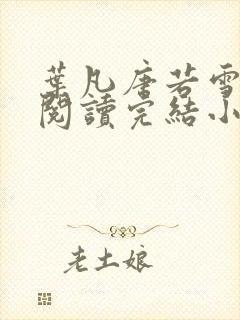 葉凡唐若雪
閱讀完結小
老土娘